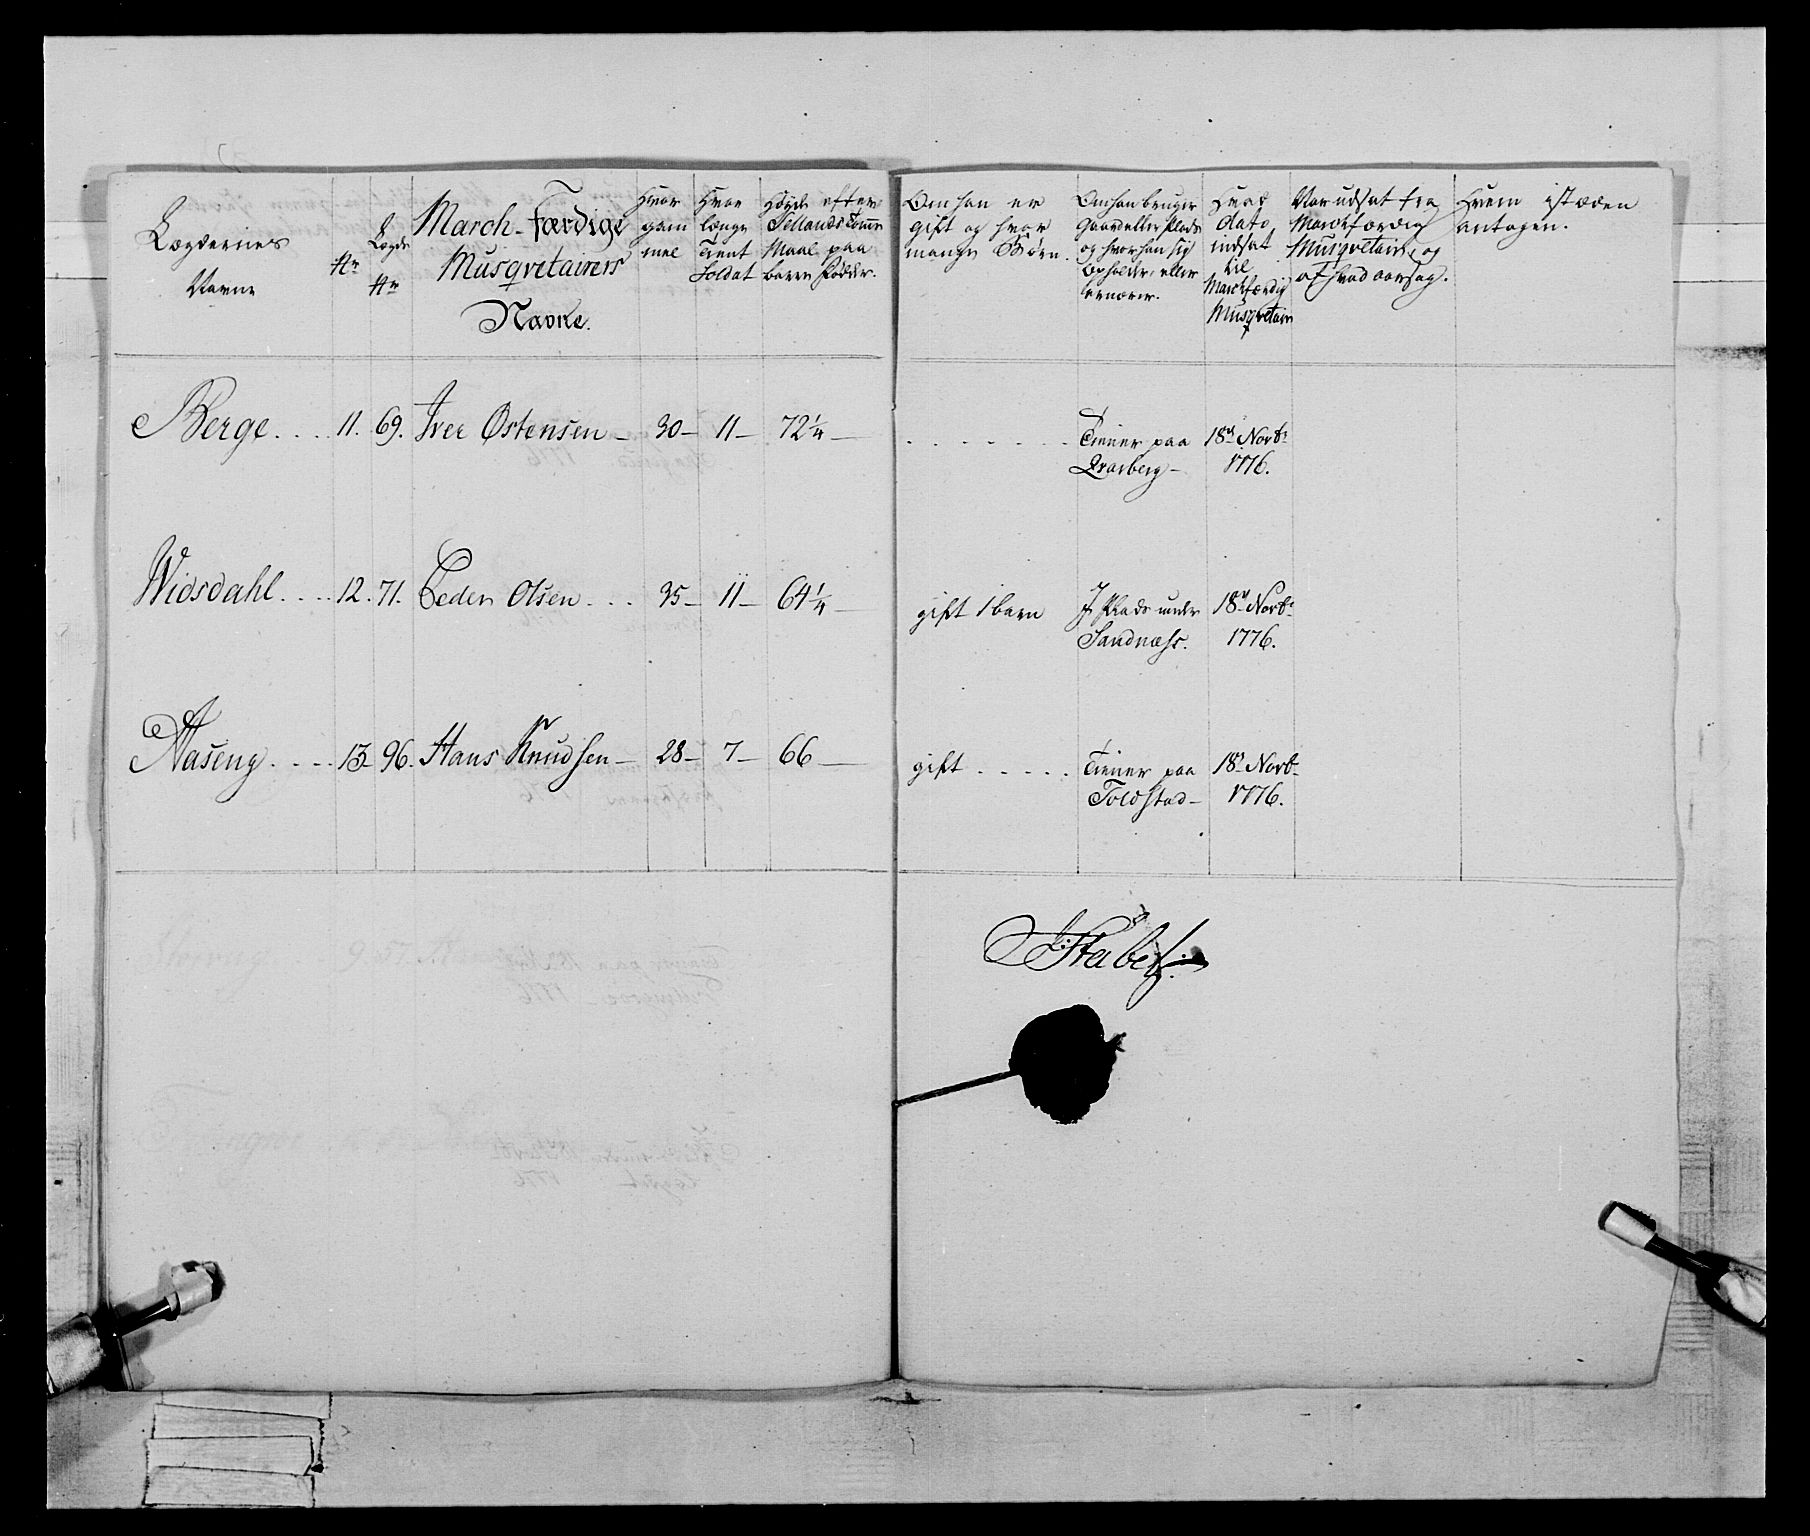 Lægdernes
Navne
Nr
Lægds
Nr
March-Færdige
Musqvetairers
Navne.
Hvor
gam
mel
Hvor
længe
Tient
Soldat
Høyde efter
Sellands Tomme
Maal paa
bare Fødder.
Om han er
gift og hvor
mange Børn.
Om han bruger
Gaard eller Plads
og hvor han sig
opholder, eller
ernærer.
Hvad
Dato
indsat
til
Marchfærdig
Musqvetair
Naar udsat fra
Marchfærdig
Musqvetair, og
af hvad aarsag.
Hvem isteden
antagen.
Berge. . . . 11. 69. Iver Østensen - 30 - 11 - 72 1/4 - . . . . . . . Tiener paa 18de Novbr
Qvarberg - 1776.
Widsdahl. . . . 12. 71. Peder Olsen. . . 35 - 11 - 64 1/4 - gift 1 barn I Plads under 18de Novbr
Sandnæss. 1776.
Aaseng. . . . 13 - 96. Hans Knudsen - 28 - 7 - 66 - gift . . . . . Tiener paa 18de Novbr
Toldstad - 1776.